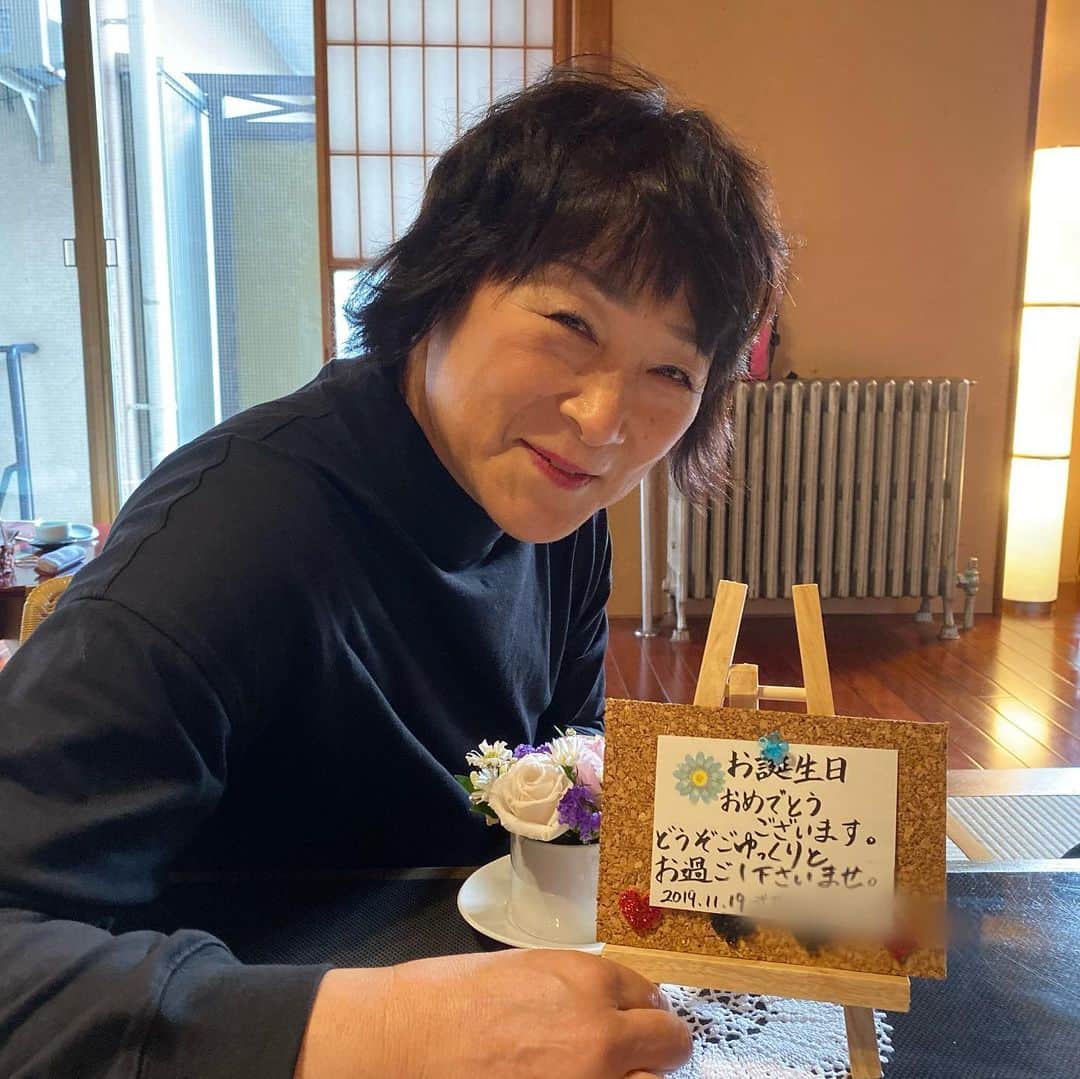 お誕生日
おめでとう
ございます。
どうぞごゆっくりと
お過ごし下さいませ。
2019.11.19